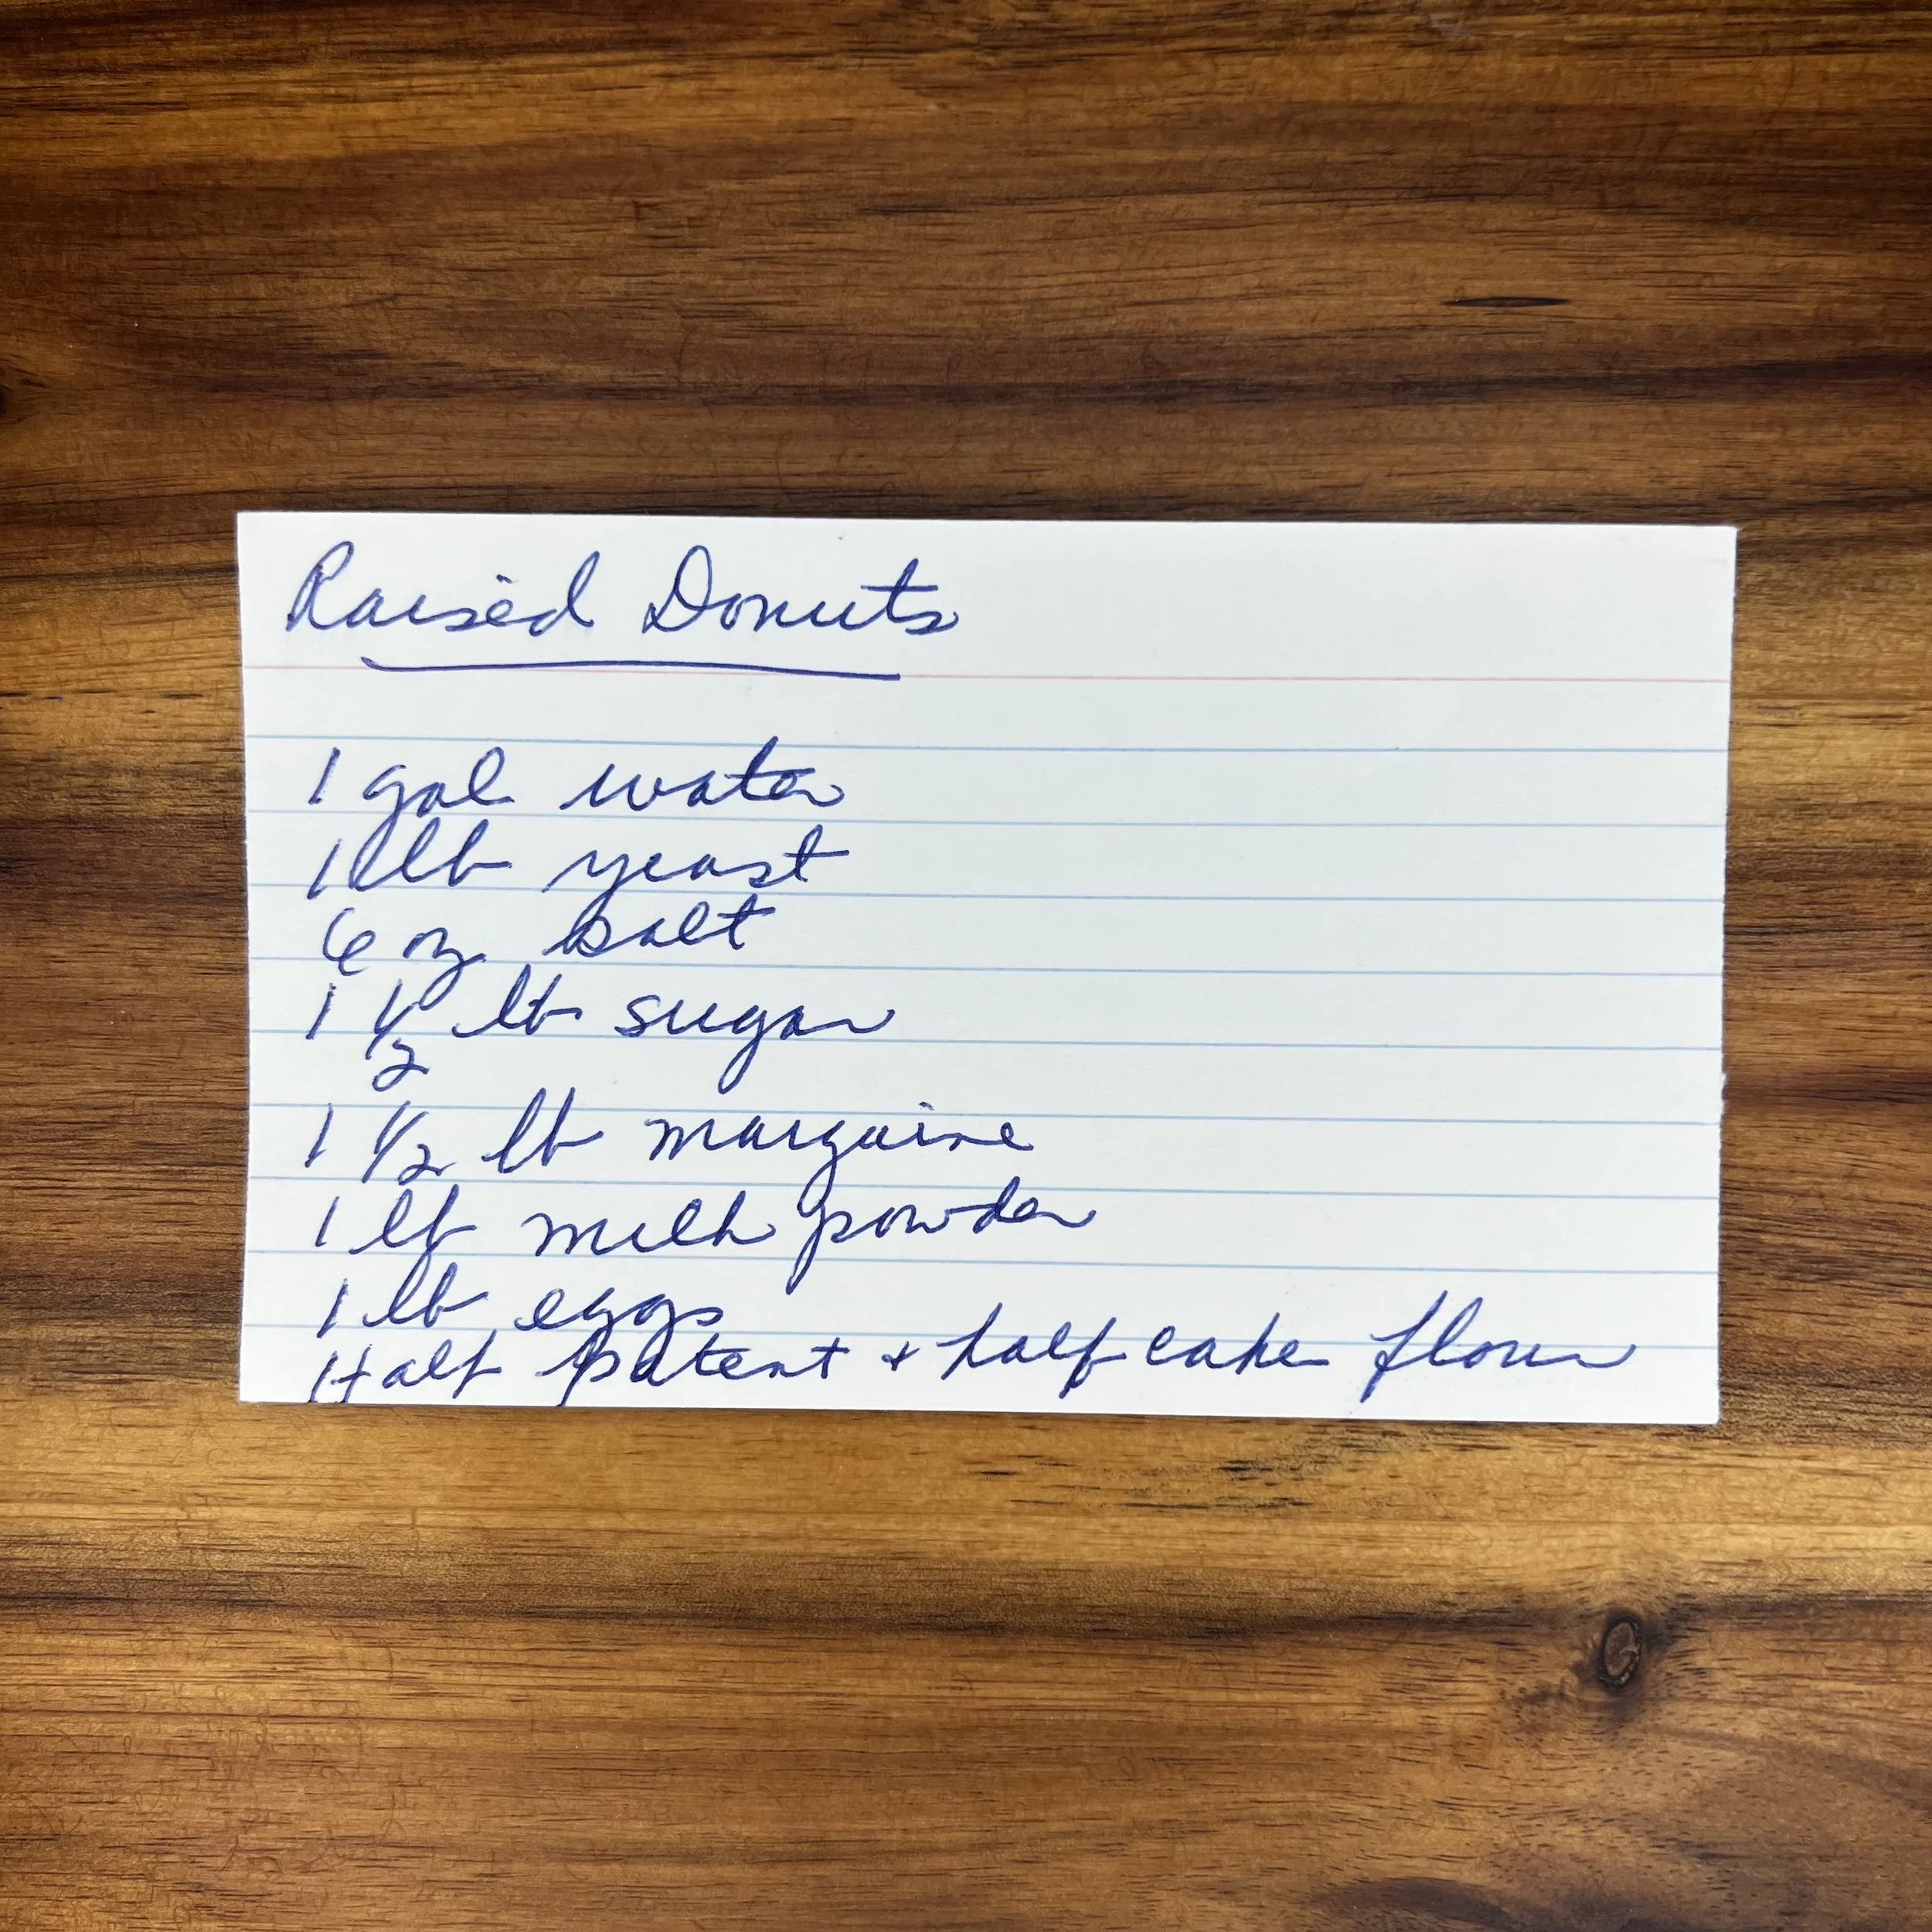 Raised Donuts
1 gal water
1 lb yeast
6 oz salt
1 1/2 lb sugar
1 1/2 lb margaine
1 lb milk powder
1 lb eggs
Half patent + half cake flour